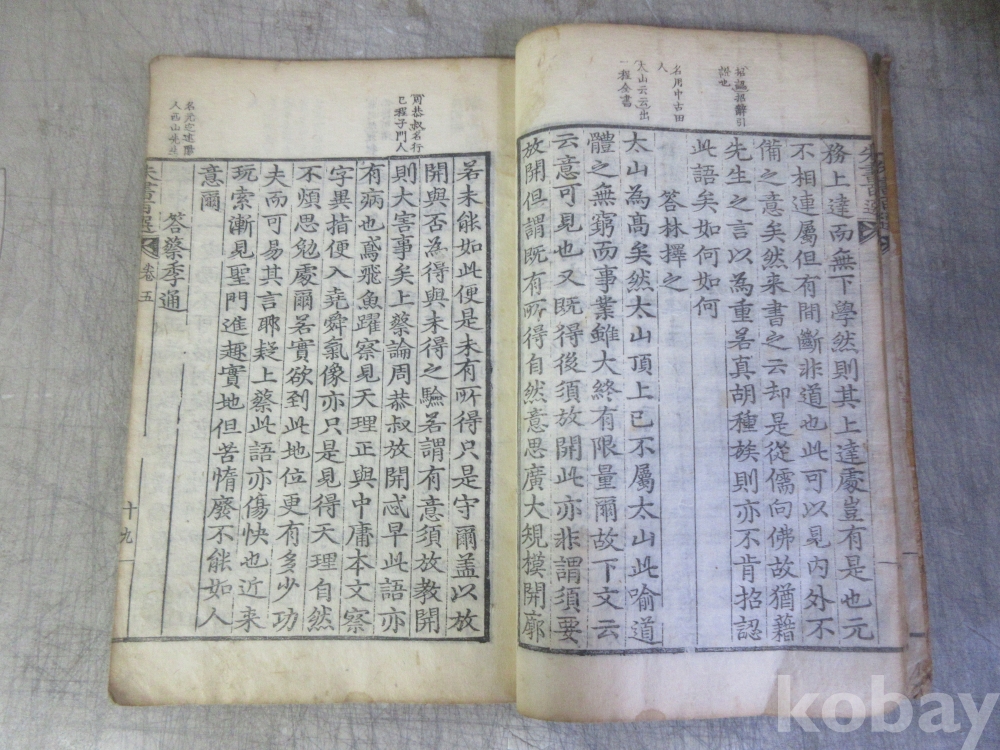 招認招辭引
證也
名用中古田
人
太山云云出
二程全書
務上達而無下學然則其上達處豈有是也元
不相連屬但有間斷非道也此可以見內外不
備之意矣然来書之云却是從儒向佛故猶藉
先生之言以為重若真胡種族則亦不肯招認
此語矣如何如何
答林擇之
太山為高矣然太山頂上已不屬太山此喻道
體之無窮而事業雖大終有限量爾故下文云
云意可見也又既得後須放開此亦非謂須要
放開但謂既有所得自然意思廣大規模開廓
周恭叔名行
己程子門人
名元定建陽
人西山先生
若未能如此便是未有所得只是守爾盖以放
開與否為得與未得之驗若謂有意須放教開
則大害事矣上蔡論周恭叔放開忒早此語亦
有病也鳶飛魚躍察見天理正與中庸本文察
字異指便入堯舜氣像亦只是見得天理自然
不煩思勉處爾若實欲到此地位更有多少功
夫而可易其言耶疑上蔡此語亦傷快也近来
玩索漸見聖門進趣實地但苦惰廢不能如人
意爾
答蔡季通
朱書百選
卷五
十九
kobay